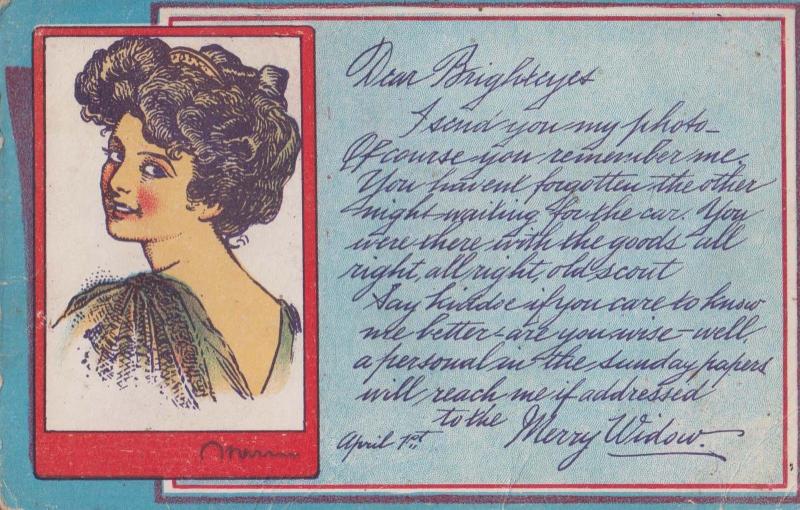 Dear Brighteyes
I send you my photo-
Of course you remember me.
You havent forgotten the other
night waiting for the car. You
were there with the goods all
right, all right old scout
Say kiddoe if you care to know
me better - are you wise - well,
a personal in the Sunday papers
will reach me if addressed
to the Merry Widow.
April 1st